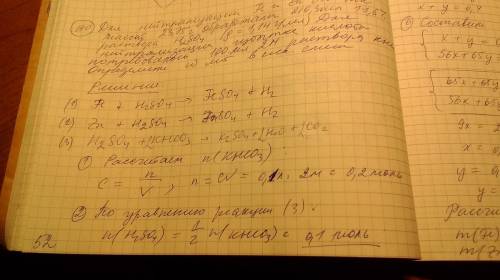 Для нейтрализации
массой 23,25 г обработали
раствора H2SO4
нейтрализации избытка кислоты
потребовалось 100 мл 2М раствора
Определите в смеси
Решение:
(1) Fe + H2SO4 → FeSO4 + H2
(2) Zn + H2SO4 → ZnSO4 + H2
(3) H2SO4 + 2KHCO3 → K2SO4 + 2H2O + 2CO2
① Рассчитаем n(KHCO3):
C = n/V, n = CV = 0,1л · 2М = 0,2 моль
② По уравнению реакции (3):
n(H2SO4) = 1/2 n(KHCO3) = 0,1 моль
52
x + y = 0,4
Составим
{ x + y =
56x + 65y
{ 65x + 65y
56x + 65
9x =
x =
y = 0,
y =
Рассчи
m(Fe)
m(Z